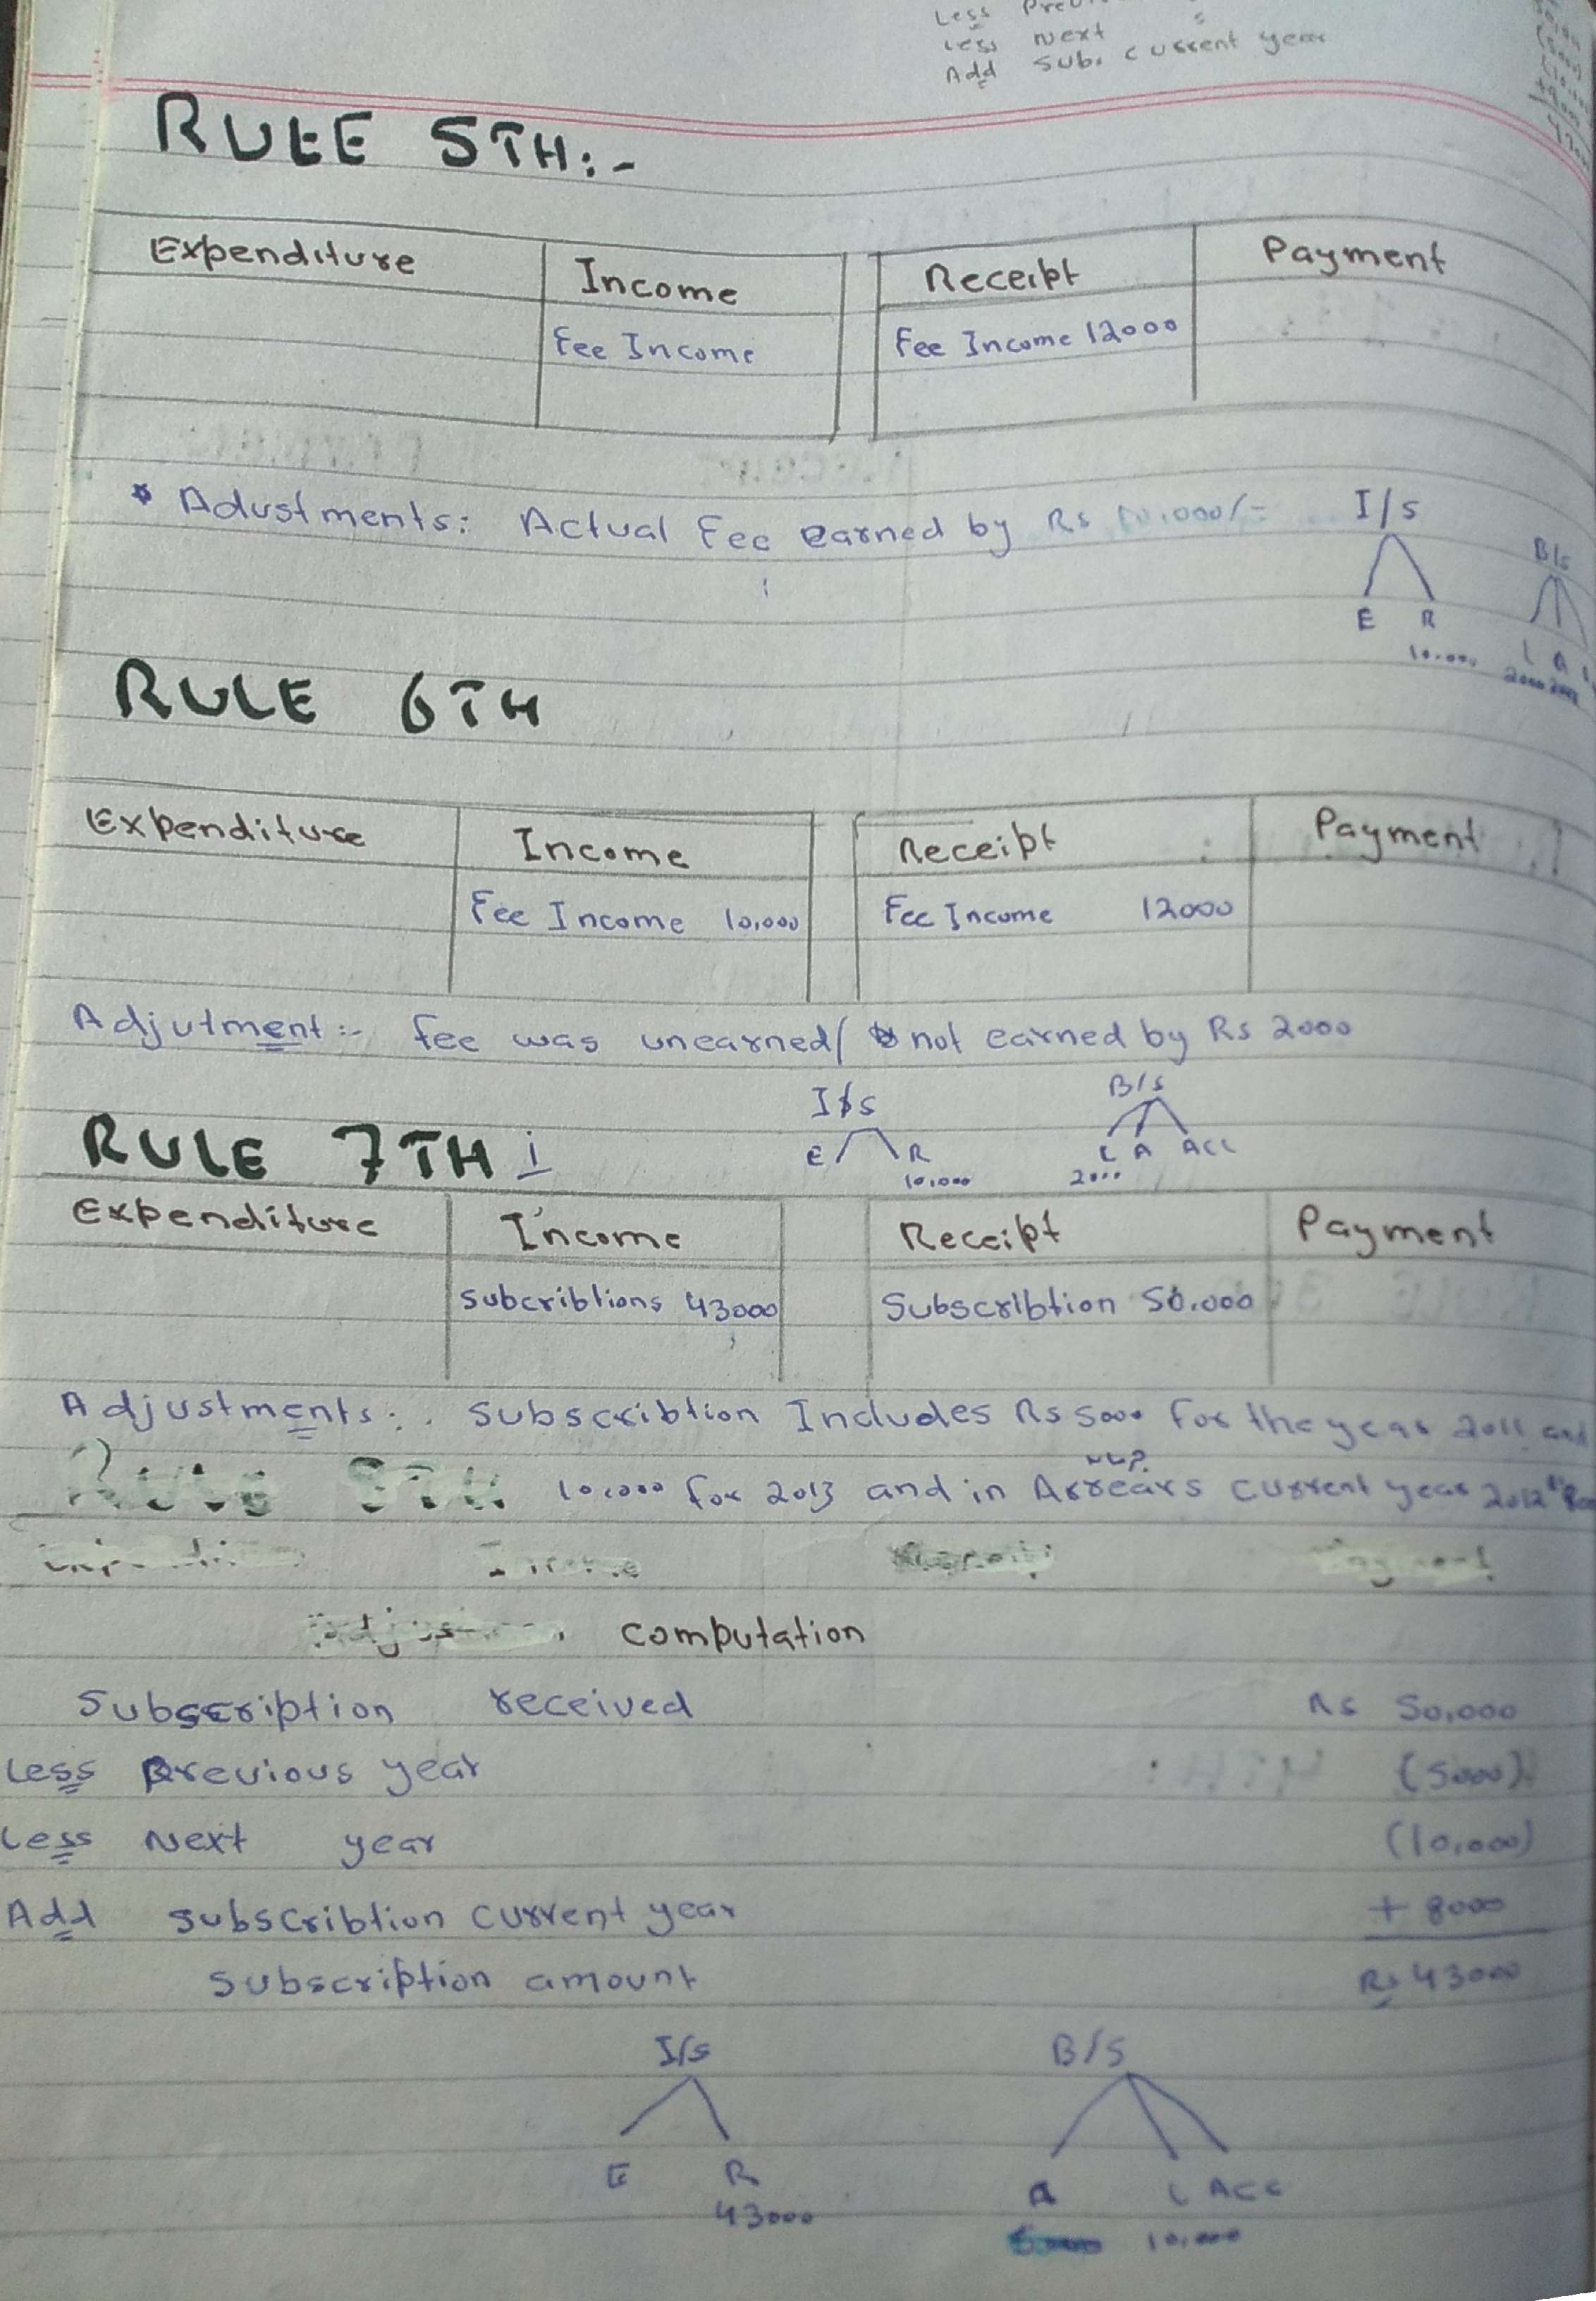 Less
Less Next
Add Sub. current year
RULE 5TH:-
Expenditure Income Receipt Payment
Fee Income Fee Income 12000
* Adustments: Actual Fee earned by Rs 10,000/=
I/S
B/S
E R
L A
10,000
2000 2000
RULE 6TH
Expenditure Income Receipt Payment
Fee Income 10,000 Fee Income 12000
Adjutment:- fee was unearned/ not earned by Rs 2000
I/S B/S
RULE 7TH :
E R L A ACC
10,000 2000
Expenditure Income Receipt Payment
Subcribtions 43000 Subscribtion 50,000
Adjustments: Subscribtion Includes Rs 5000 for the year 2011 and
RULE 8TH 10,000 for 2013 and in Arrears current year 2012
Income Receipt Payment
computation
Subscription received Rs 50,000
Less Previous year (5000)
Less Next year (10,000)
Add subscribtion current year + 8000
Subscription amount Rs 43000
I/S B/S
E R A L ACC
43000 10,000